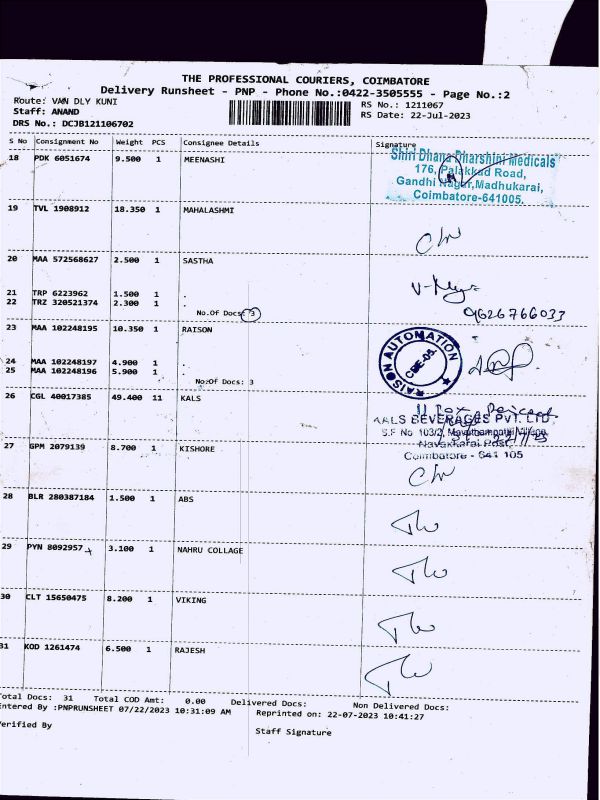 THE PROFESSIONAL COURIERS, COIMBATORE
Delivery Runsheet - PNP - Phone No.:0422-3505555 - Page No.:2
Route: VAN DLY KUNI RS No.: 1211067
Staff: ANAND RS Date: 22-Jul-2023
DRS No.: DCJB121106702
S No Consignment No Weight PCS Consignee Details Signature
18 PDK 6051674 9.500 1 MEENASHI
Shri Dhana Dharshini Medicals
176, Palakkad Road,
Gandhi Nagar,Madhukarai,
Coimbatore-641005.
19 TVL 1908912 18.350 1 MAHALASHMI
20 MAA 572568627 2.500 1 SASTHA
21 TRP 6223962 1.500 1 .
22 TRZ 320521374 2.300 1 .
No.Of Docs: 3 9626766033
23 MAA 102248195 10.350 1 RAISON
RAISON AUTOMATION
CBE-05.
24 MAA 102248197 4.900 1 .
25 MAA 102248196 5.900 1 .
No:Of Docs: 3
26 CGL 40017385 49.400 11 KALS
11 Box
KALS BEVERAGES PVT. LTD
S.F No 103/2, Mavuthampathi Village,
Navakkarai Post,
Coimbatore - 641 105
27 GPM 2079139 8.700 1 KISHORE
28 BLR 280387184 1.500 1 ABS
29 PYN 8092957 3.100 1 NAHRU COLLAGE
30 CLT 15650475 8.200 1 VIKING
31 KOD 1261474 6.500 1 RAJESH
Total Docs: 31 Total COD Amt: 0.00 Delivered Docs: Non Delivered Docs:
Entered By :PNPRUNSHEET 07/22/2023 10:31:09 AM Reprinted on: 22-07-2023 10:41:27
Verified By Staff Signature